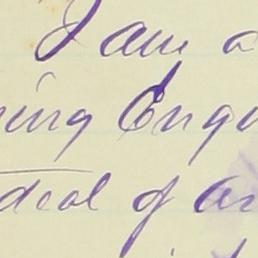 I am a
ning Engi
deal of ar